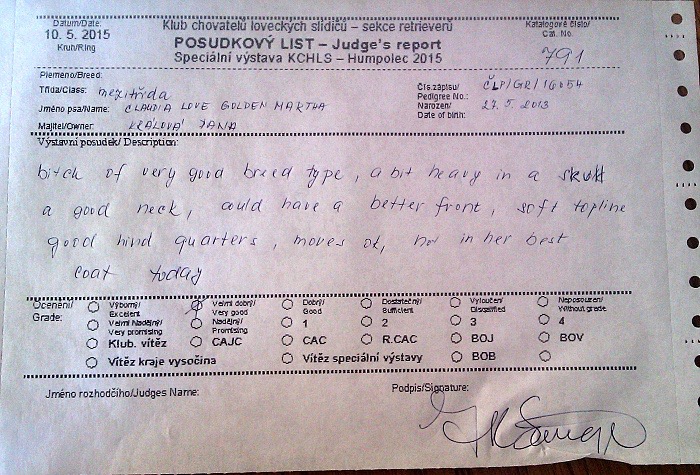 Datum/Date: Klub chovatelů loveckých slidičů – sekce retrieverů Katalogové číslo/
10. 5. 2015 POSUDKOVÝ LIST – Judge's report Cat. No.
Kruh/Ring Speciální výstava KCHLS – Humpolec 2015 791
Plemeno/Breed:
Třída/Class: mezitřída Čís.zápisu/ ČLP/GR/16054
Pedigree No.:
Jméno psa/Name: CLAUDIA LOVE GOLDEN MARTHA Narozen/ 27. 5. 2013
Date of birth:
Majitel/Owner: KRÁLOVÁ JANA
Výstavní posudek/ Description:
bitch of very good breed type, a bit heavy in a skull
a good neck, could have a better front, soft topline
good hind quarters, moves ok, not in her best
coat today
Ocenění/ Výborný/ Velmi dobrý/ Dobrý/ Dostatečný/ Vyloučen/ Neposouzen/
Grade: Excelent Very good Good Sufficient Disqalified Without grade
Velmi Nadějný/ Nadějný/ 1 2 3 4
Very promising Promising
Klub. vítěz CAJC CAC R.CAC BOJ BOV
Vítěz kraje vysočina Vítěz speciální výstavy BOB
Jméno rozhodčího/Judges Name: Podpis/Signature: